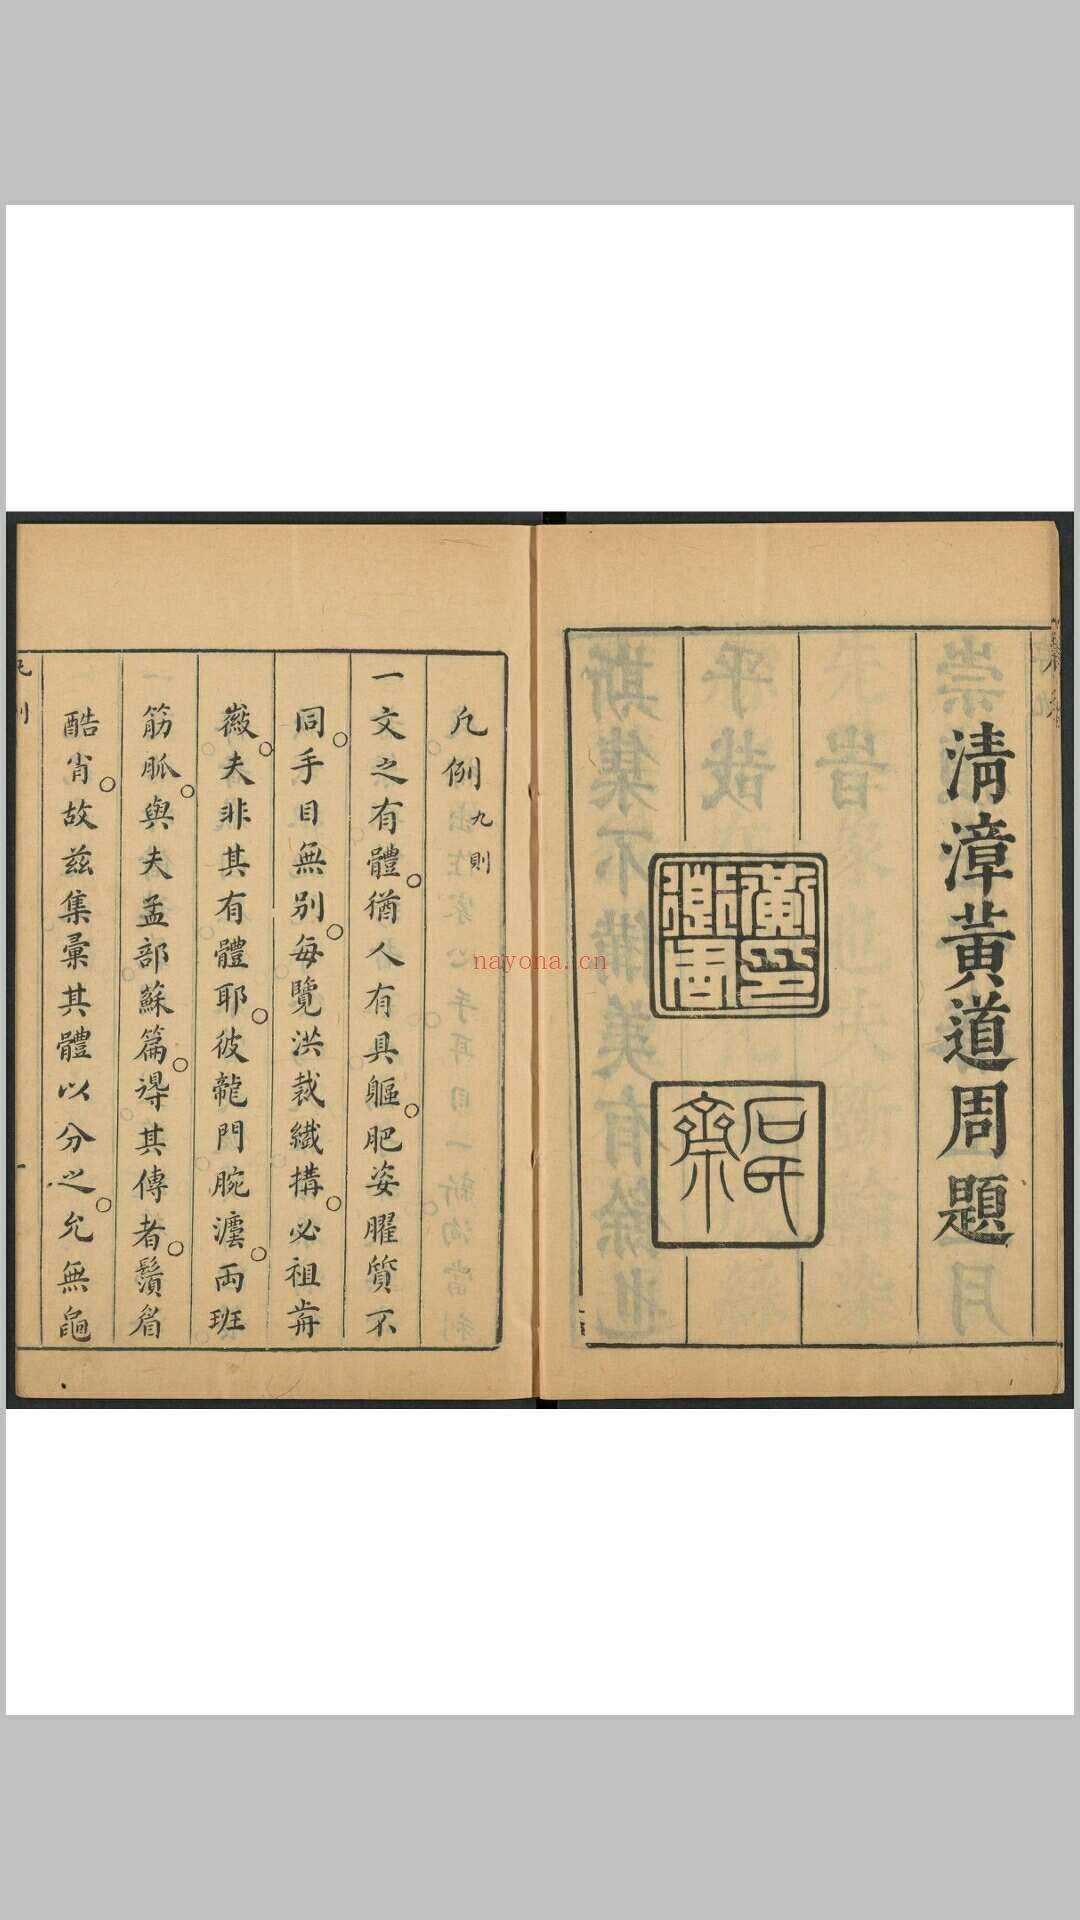 清漳黃道周題
石齋
凡例九則
一文之有體猶人有具軀肥姿臞質不
同手目無別每覽洪裁纖搆必祖歬
嶶夫非其有體耶彼龍門腕澐兩班
筋脈與夫孟部蘇篇得其傳者鬚眉
酷肖故茲集彙其體以分之允無
凡例
一
nayona.cn